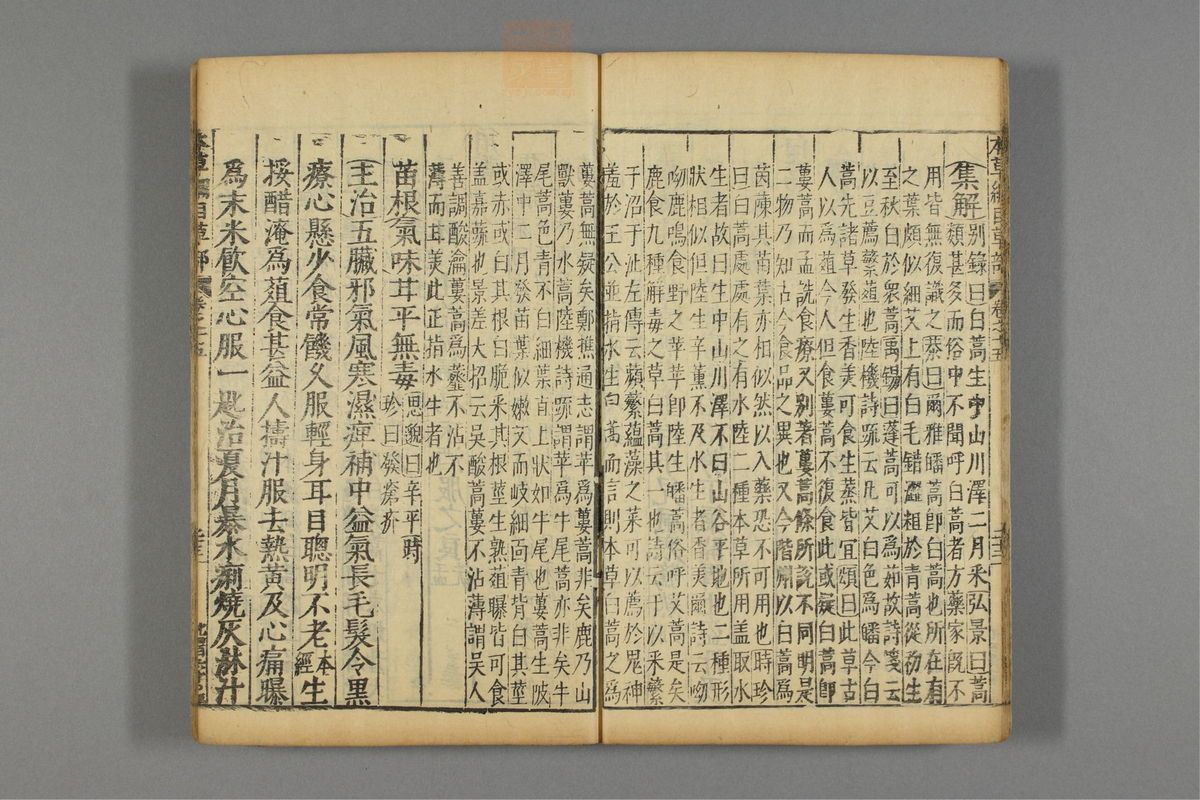 本草綱目草部 卷之十五
集解別錄曰白蒿生中山川澤二月采弘景曰蒿
類甚多而俗中不聞呼白蒿者方藥家既不
用皆無復識之恭曰爾雅皤蒿卽白蒿也所在有
之葉頗似細艾上有白毛錯澀粗於青蒿從初生
至秋白於衆蒿禹錫曰蓬蒿可以爲茹故詩箋云
以豆薦蘩葅也陸機詩疏云凡艾白色爲皤今白
蒿先諸草發生香美可食生蒸皆宜頌曰此草古
人以爲葅今人但食蔞蒿不復食此或疑白蒿卽
蔞蒿而孟詵食療又別著蔞蒿條所說不同明是
二物乃知古今食品之異也又今階州以白蒿爲
茵蔯其苗葉亦相似然以入藥恐不可用也時珍
曰白蒿處處有之有水陸二種本草所用蓋取水
生者故曰生中山川澤不曰山谷平地也二種形
狀相似但陸生辛薰不及水生者香美爾詩云呦
呦鹿鳴食野之苹苹卽陸生皤蒿俗呼艾蒿是矣
鹿食九種解毒之草白蒿其一也詩云于以采蘩
于沼于沚左傳云蘋蘩蘊藻之菜可以薦於鬼神
羞於王公並指水生白蒿而言則本草白蒿之爲
蔞蒿無疑矣鄭樵通志謂苹爲蔞蒿非矣鹿乃山
獸蔞乃水蒿陸機詩疏謂苹爲牛尾蒿亦非矣牛
尾蒿色青不白細葉直上狀如牛尾也蔞蒿生陂
澤中二月發苗葉似嫩艾而岐細面青背白其莖
或赤或白其根白脆采其根莖生熟葅曝皆可食
蓋嘉蔬也景差大招云吳酸蒿蔞不沾薄謂吳人
善調酸瀹蔞蒿爲虀不沾不
薄而甘美此正指水生者也
苗根氣味甘平無毒思邈曰辛平時珍曰發瘡疥
主治五臟邪氣風寒濕痺補中益氣長毛髮令黑
療心懸少食常饑久服輕身耳目聰明不老本經生
挼醋淹爲葅食甚益人擣汁服去熱黃及心痛曝
爲末米飲空心服一匙治夏月暴水痢燒灰淋汁
本草綱目草部 卷之十五